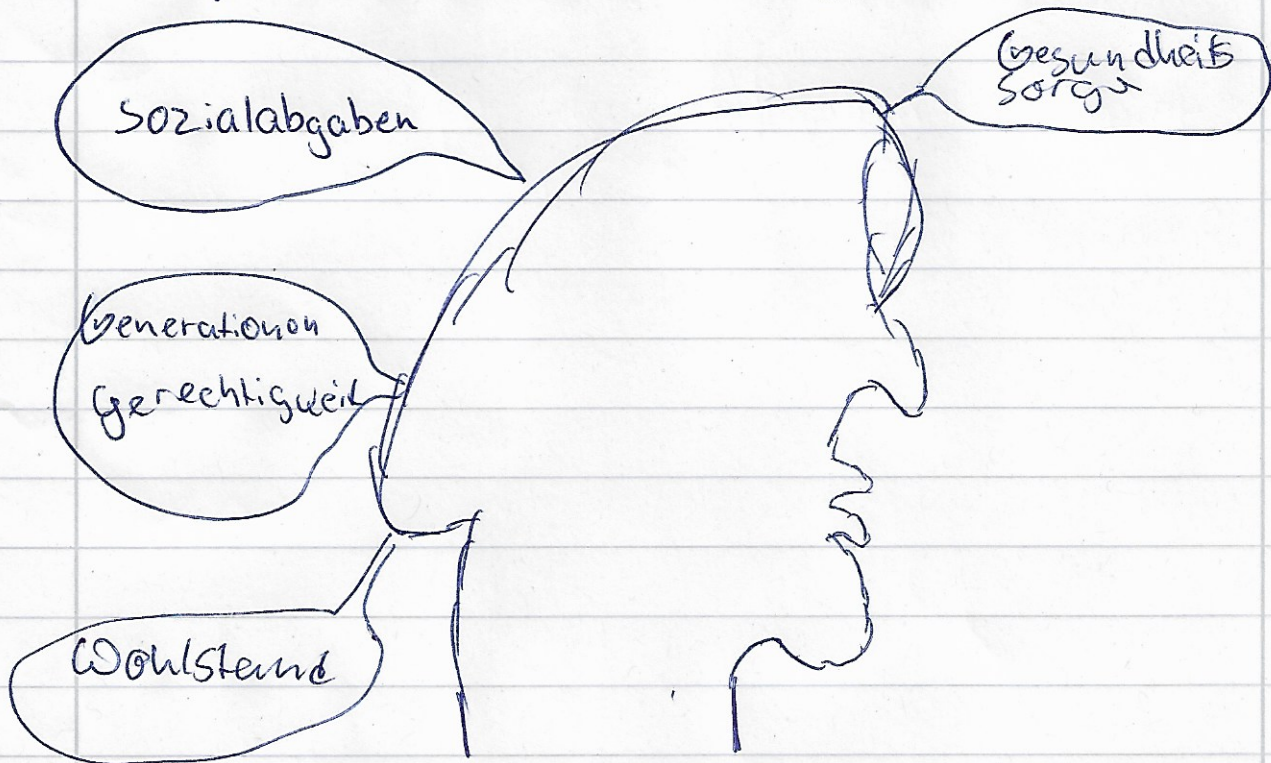 Sozialabgaben
Gesundheits
sorge
Generationen
gerechtigkeit
Wohlstand